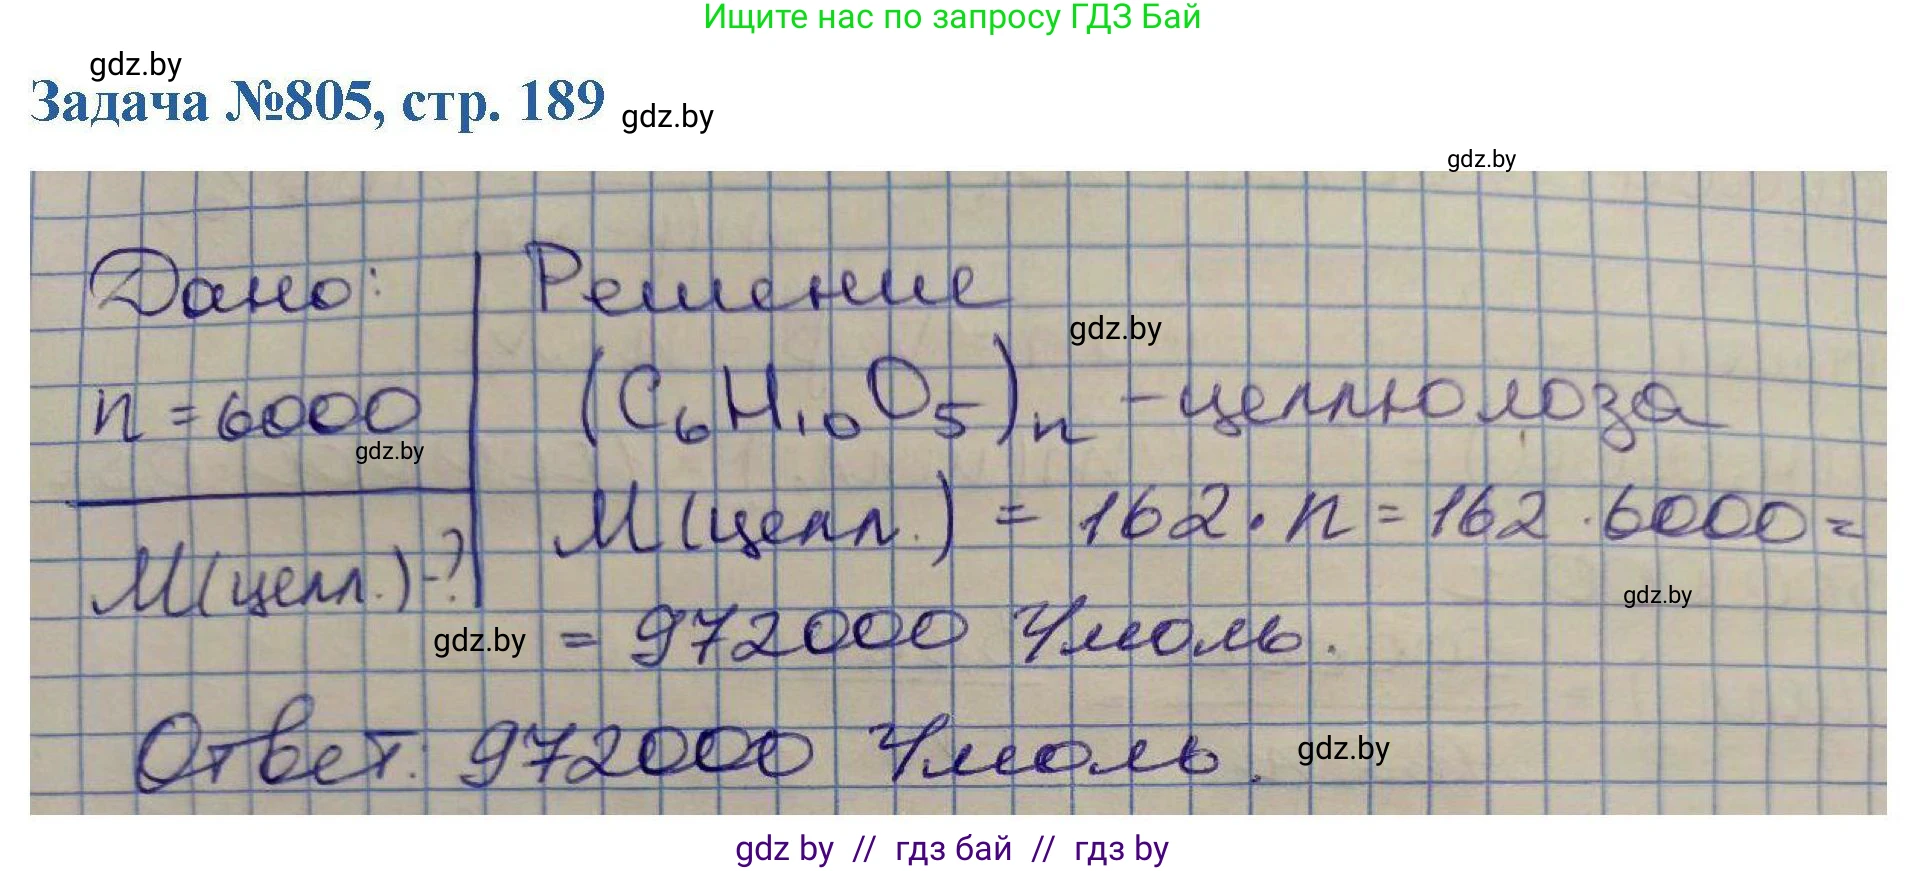 Ищите нас по запросу ГДЗ Бай
gdz.by
Задача №805, стр. 189 gdz.by
gdz.by
Дано: Решение
gdz.by
n = 6000 (C₆H₁₀O₅)ₙ - целлюлоза
gdz.by
М(целл.) = 162 · n = 162 · 6000 =
М(целл.) - ?
gdz.by
gdz.by = 972000 г/моль.
Ответ: 972000 г/моль. gdz.by
gdz by // гдз бай // гдз by